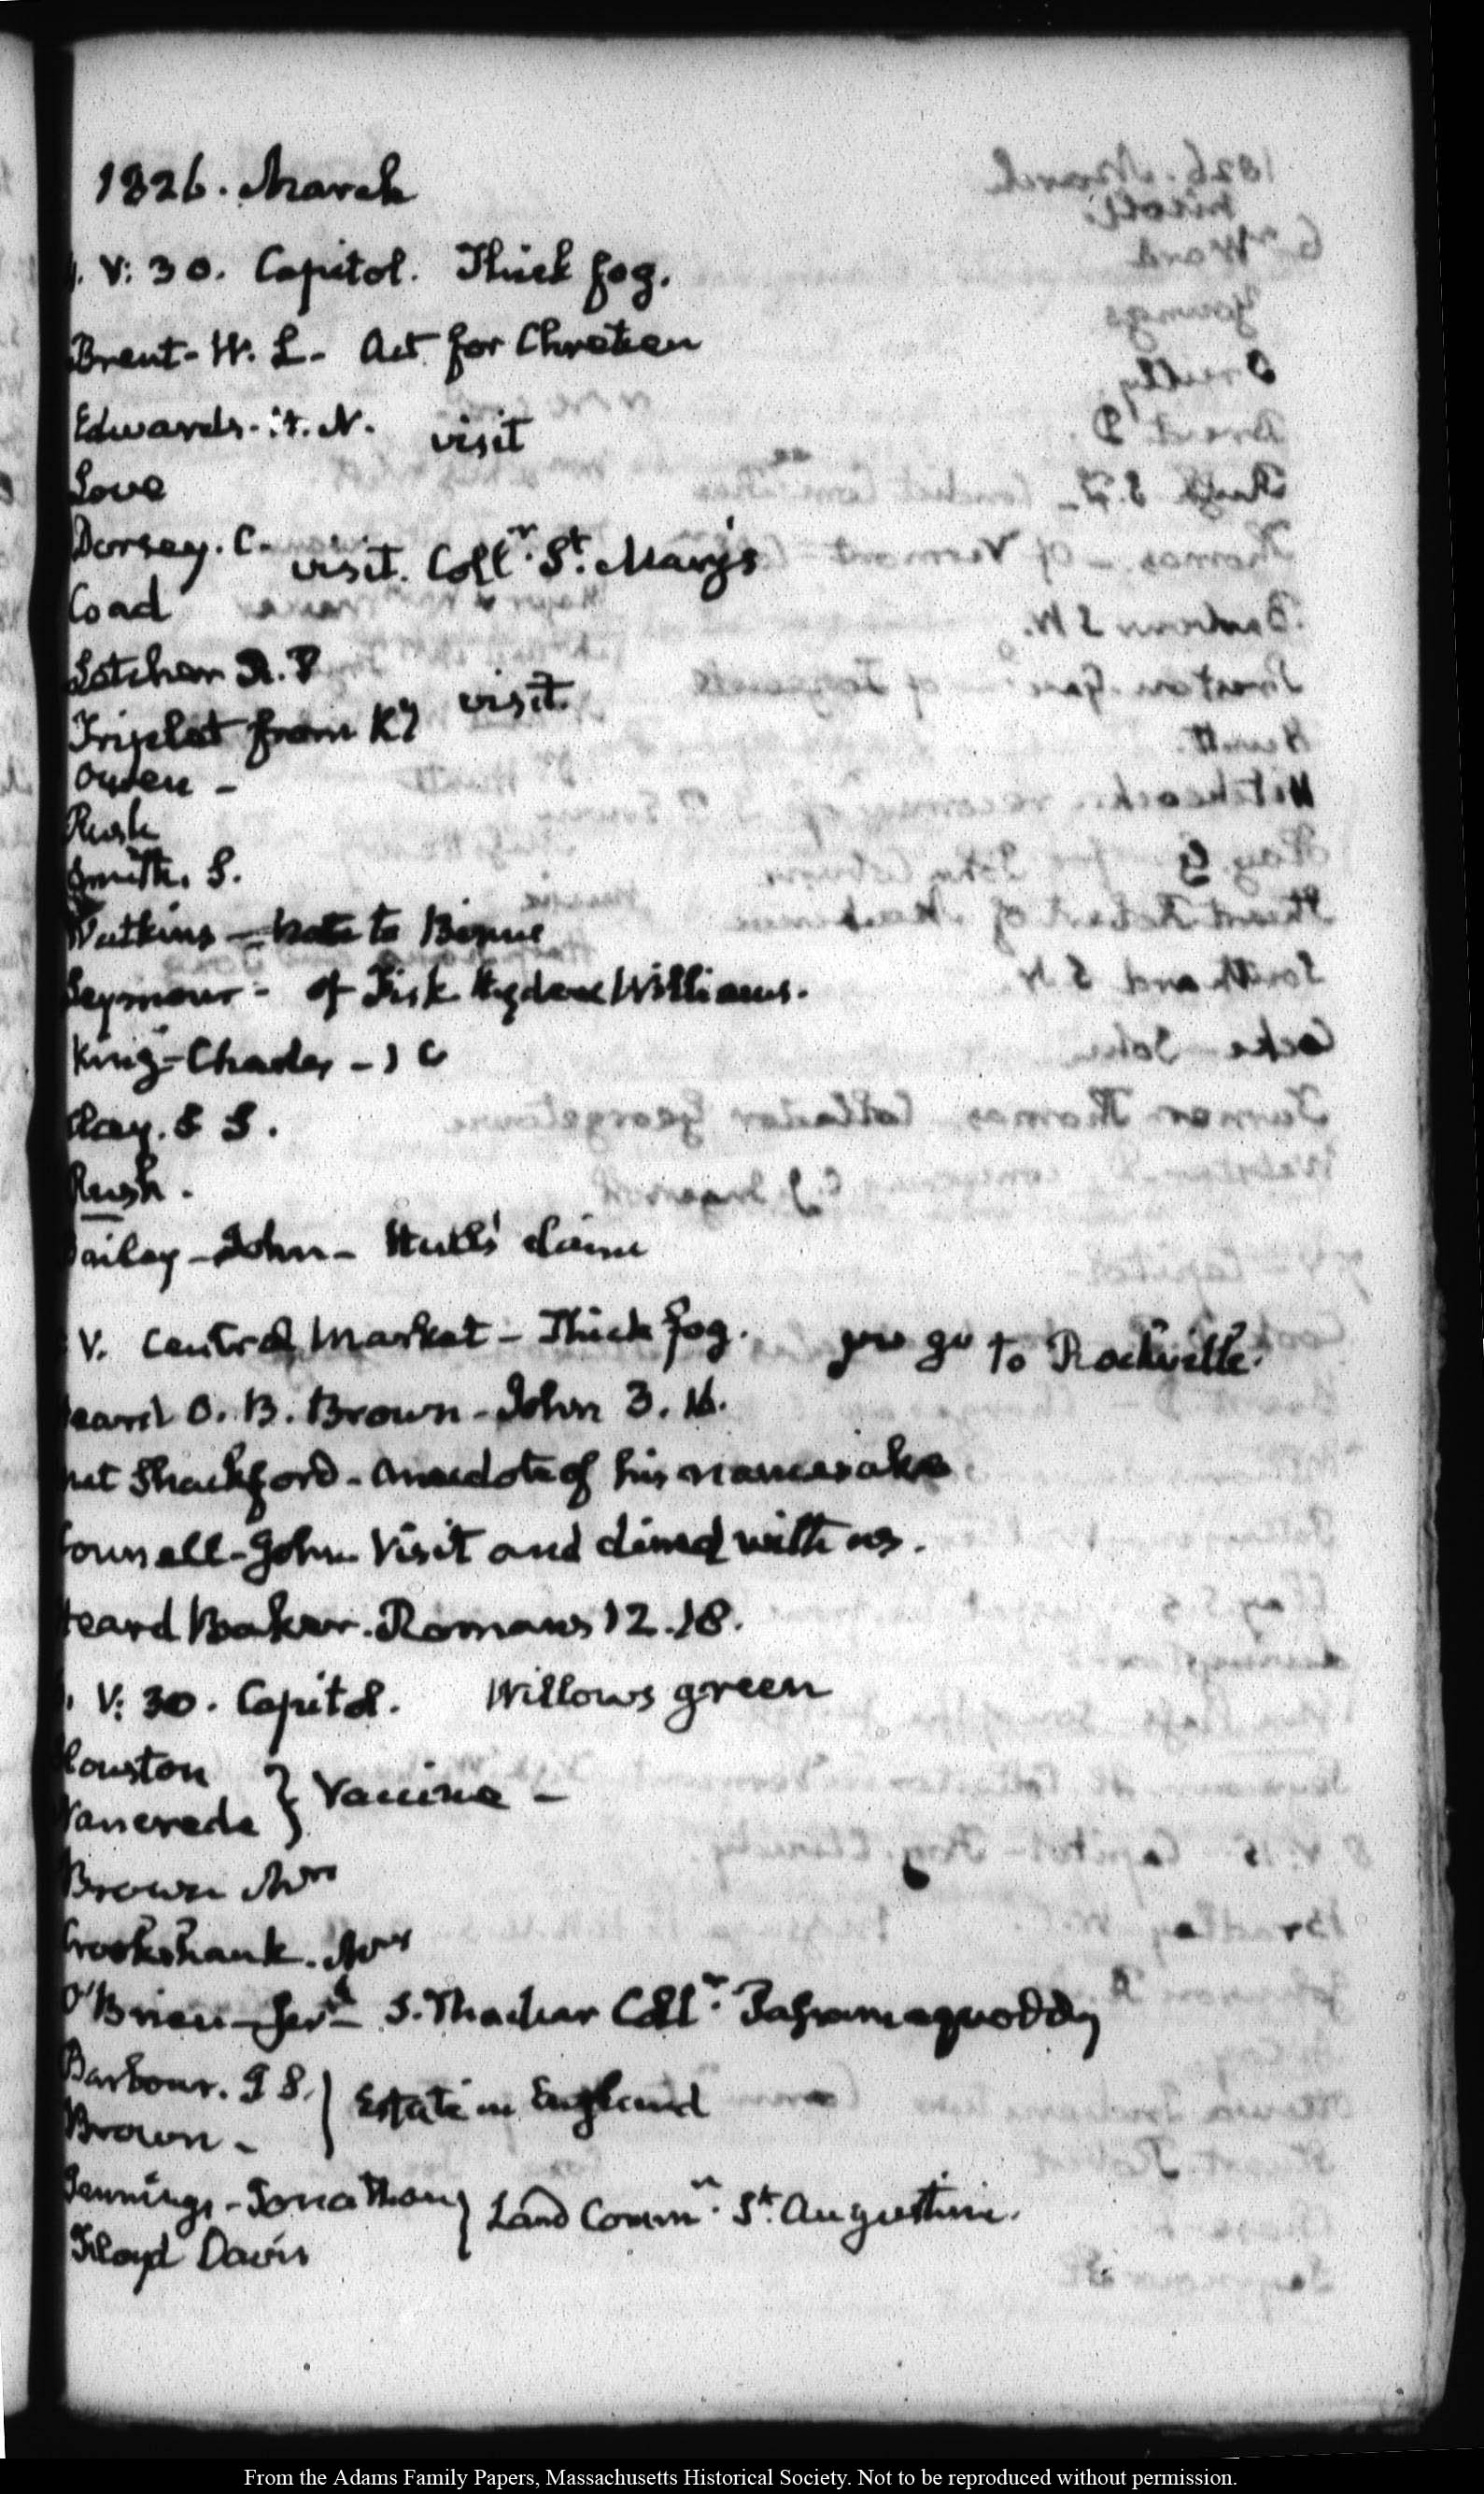 1826. March
V: 30. Capitol. Thick fog.
Brent - W. L. - Act for Chretien
Edwards - N. visit
Love
Dorsey. C. visit. Collr. St. Mary's
Coad
Letcher R. P visit
Triplet from Ky
Owen -
Rush
Smith. S.
Watkins - Note to
Seymour - of Fisk Williams.
King - Charles -
Clay. S.
Rush.
ailey - John - Hulls' claim
V. Central Market - Thick fog. go to Rockville.
eard O. B. Brown - John 3. 16.
et Shackford - Anecdote of his namesake
onnell - John Visit and dined with us.
eard Baker. Romans 12. 18.
V: 30. Capitol. Willows green
Houston } Vaccine -
Vancrede
Brown Mrs
Crookshank. Mrs
O'Brien - Jer. - S. Thacher Collr. Passamaquoddy
Barbour. } Estate in England
Brown -
Jennings - Jonathan } Land Commr. St. Augustine.
Floyd Davis
From the Adams Family Papers, Massachusetts Historical Society. Not to be reproduced without permission.